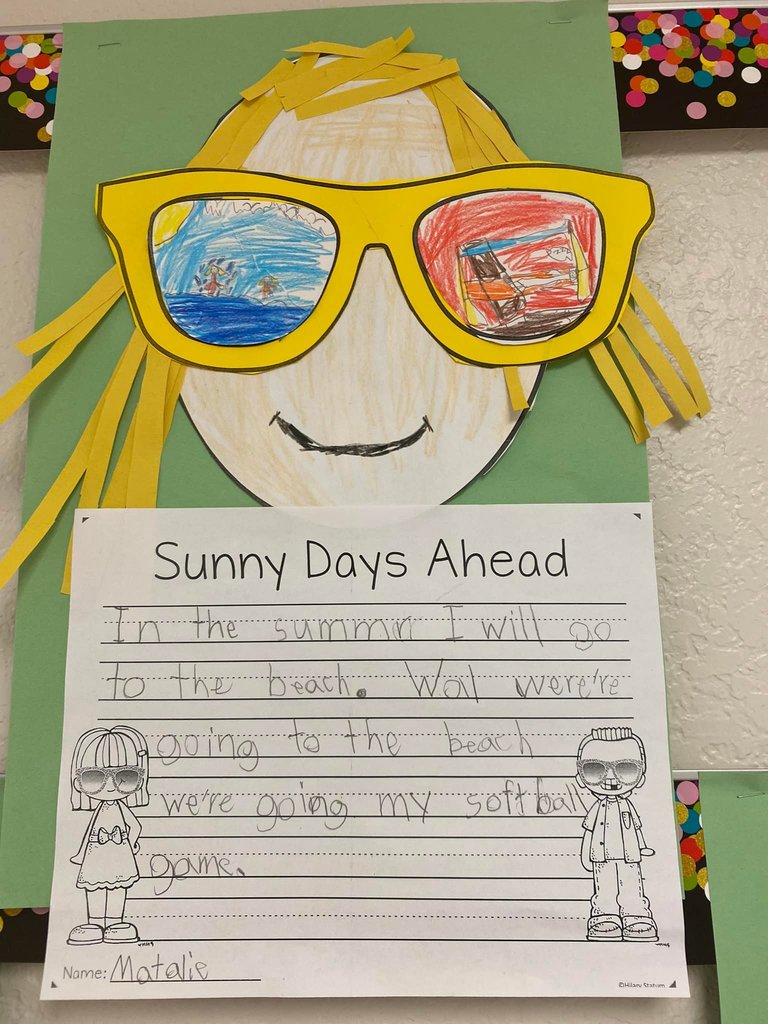 Sunny Days Ahead
In the summr I will go
to the beach. Wal were're
going to the beach
we're going my softball
game.
Name: Matalie
©Hilary Statum